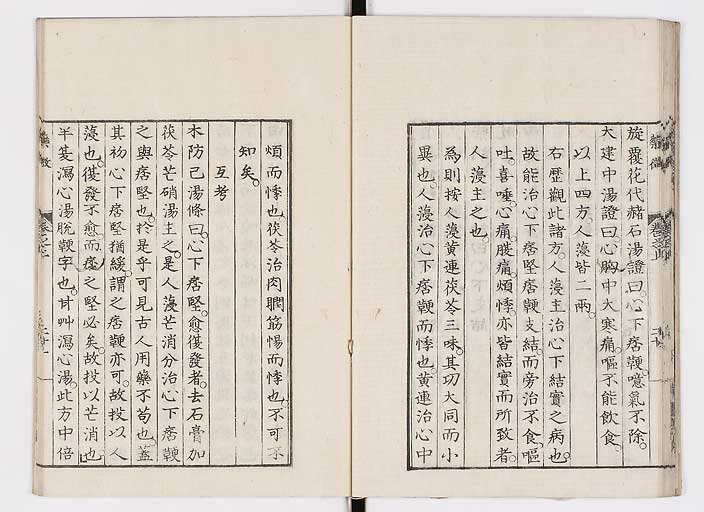 旋覆花代赭石湯證曰心下痞鞕噫氣不除
大建中湯證曰心胸中大寒痛嘔不能飲食
以上四方人蓡皆二兩
右歷觀此諸方人蓡主治心下結實之病也
故能治心下痞堅痞鞕支結而旁治不食嘔
吐喜唾心痛腹痛煩悸亦皆結實而所致者
人蓡主之也
為則按人蓡黃連茯苓三味其功大同而小
異也人蓡治心下痞鞕而悸也黃連治心中
煩而悸也茯苓治肉瞤筋惕而悸也不可不
知矣
互考
木防已湯條曰心下痞堅愈復發者去石膏加
茯苓芒硝湯主之是人蓡芒消分治心下痞鞕
之與痞堅也於是乎可見古人用藥不苟也蓋
其初心下痞堅猶緩謂之痞鞕亦可故投以人
蓡也復發不愈而痞之堅必矣故投以芒消也
半夏瀉心湯脫鞕字也甘艸瀉心湯此方中倍